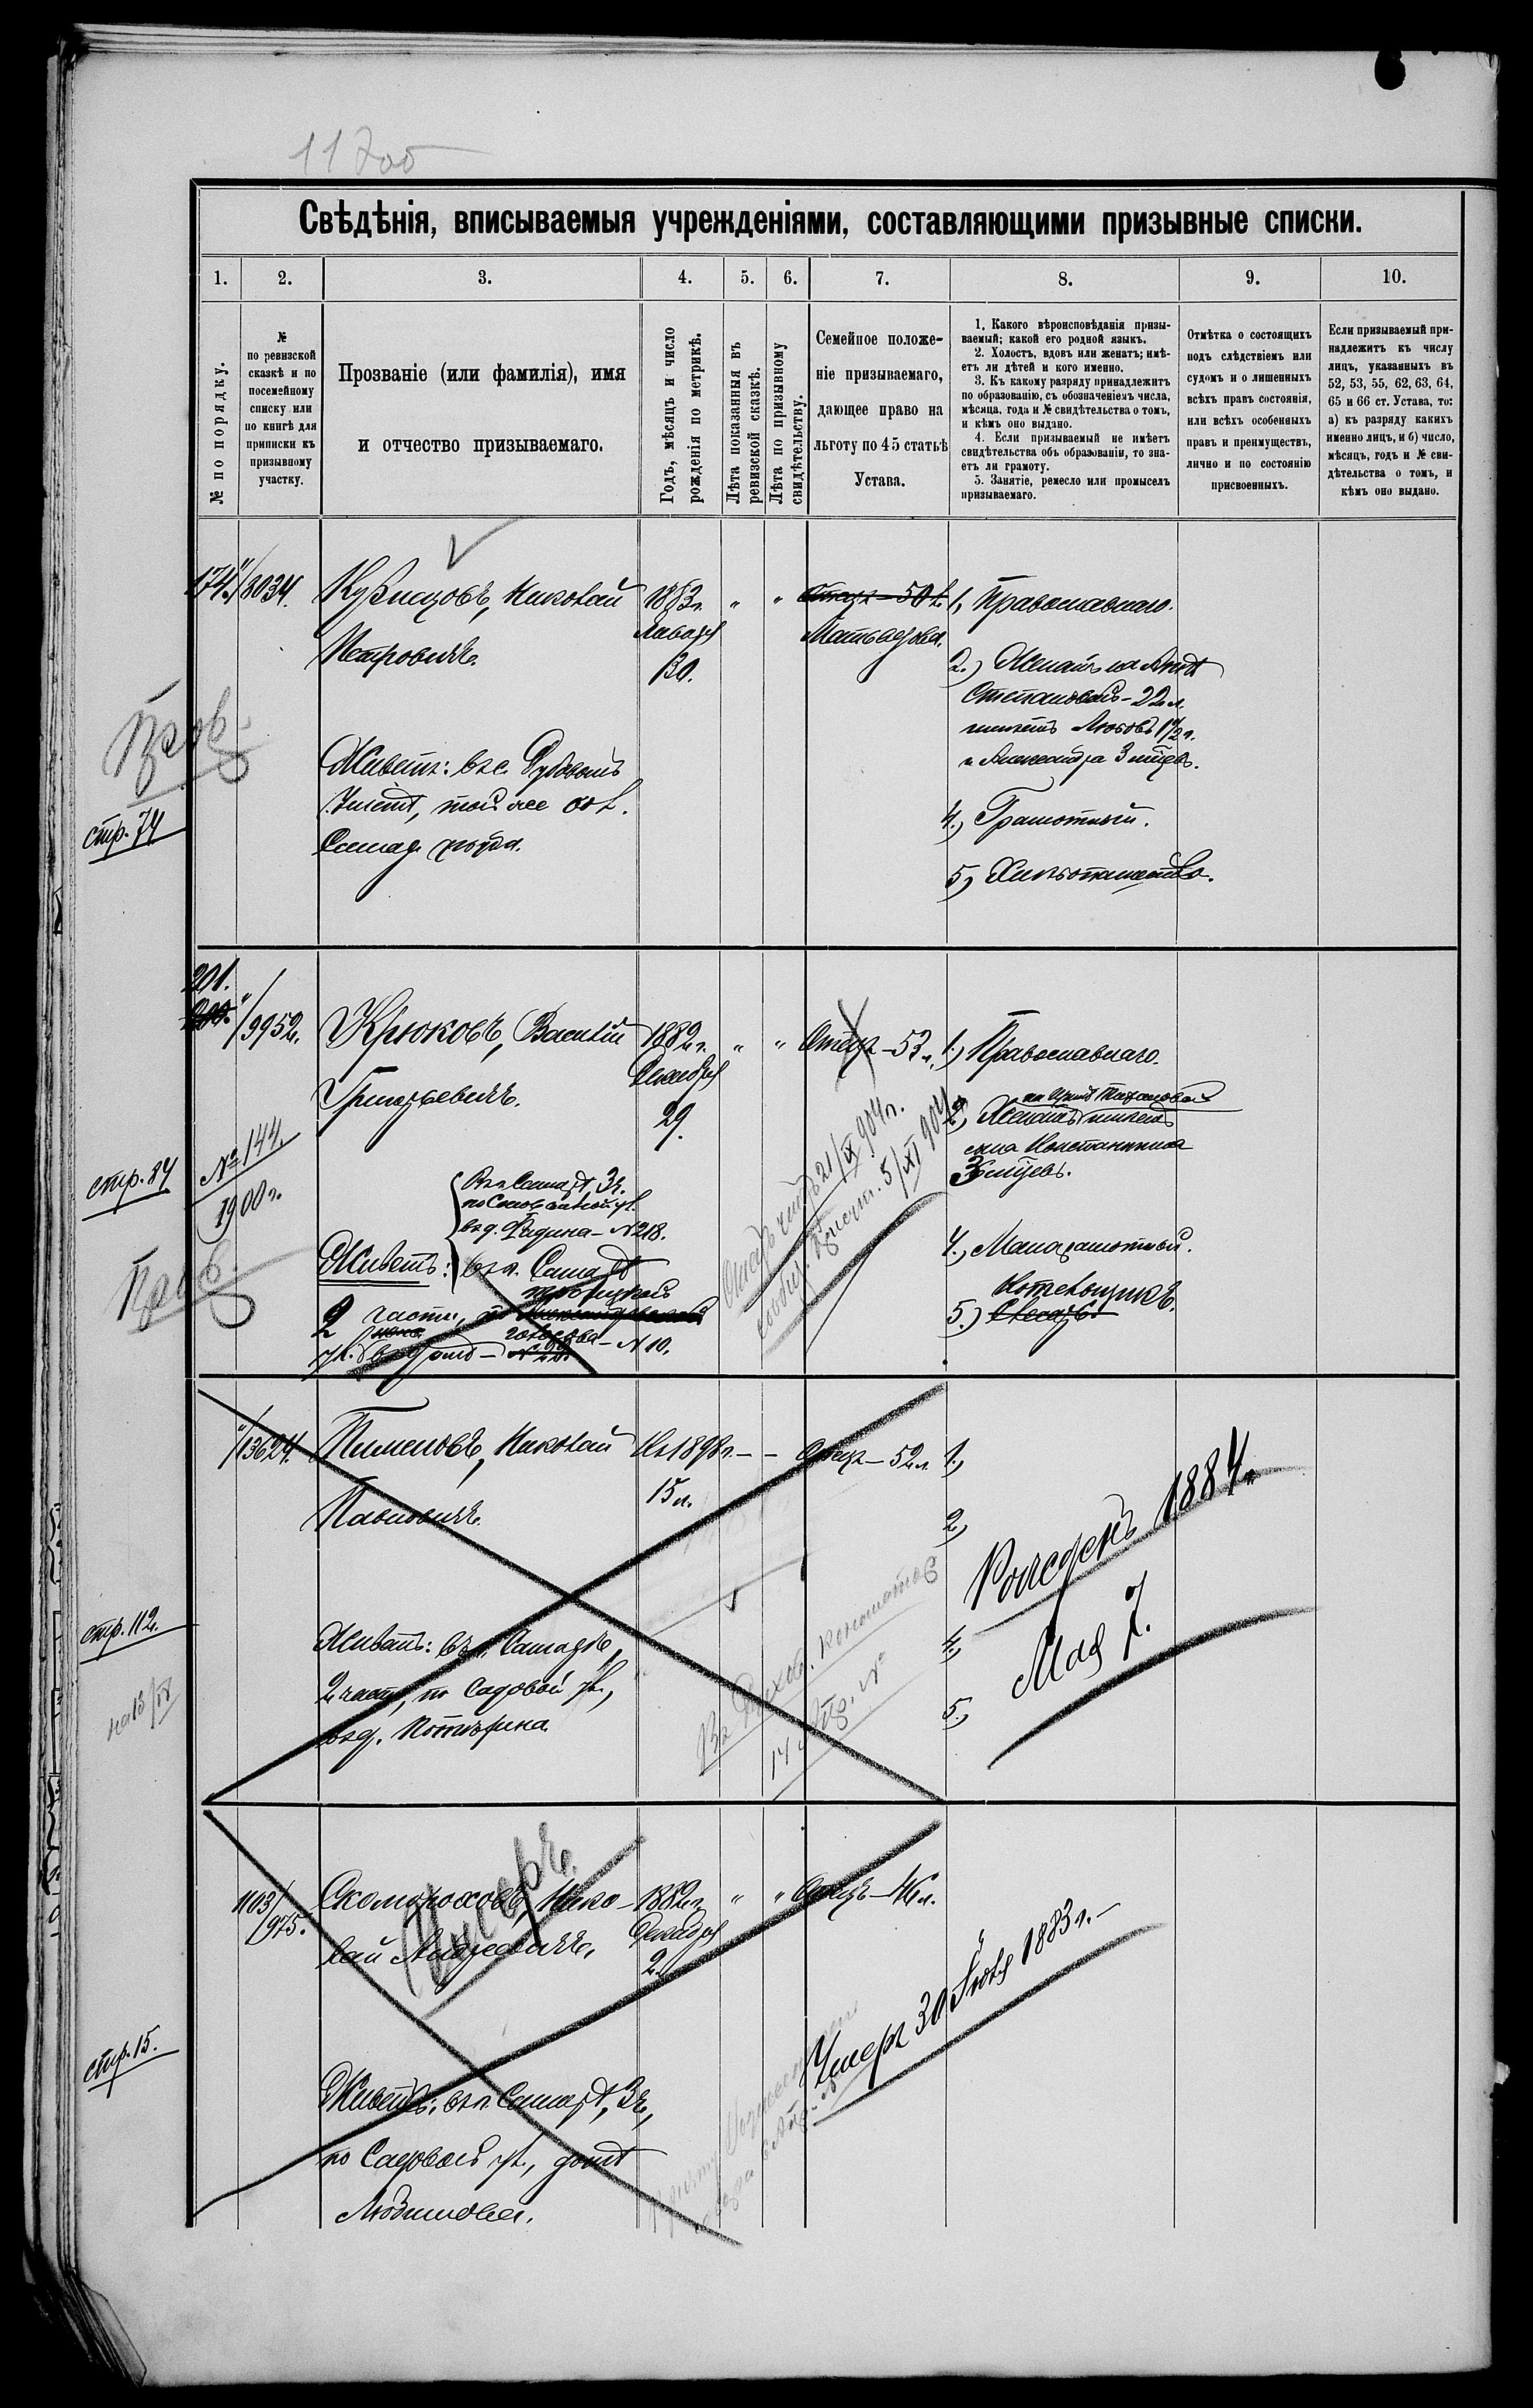 11700
Свѣдѣнія, вписываемыя учрежденіями, составляющими призывные списки.
1. 2. 3. 4. 5. 6. 7. 8. 9. 10.
№ по порядку.
№
по ревизской
сказкѣ и по
посемейному
списку или
по книгѣ для
приписки къ
призывному
участку.
Прозваніе (или фамилія), имя
и отчество призываемаго.
Годъ, мѣсяцъ и число
рожденія по метрикѣ.
Лѣта показанныя въ
ревизской сказкѣ.
Лѣта по призывному
свидѣтельству.
Семейное положе-
ніе призываемаго,
дающее право на
льготу по 45 статьѣ
Устава.
1. Какого вѣроисповѣданія призы-
ваемый; какой его родной языкъ.
2. Холостъ, вдовъ или женатъ; имѣ-
етъ ли дѣтей и кого именно.
3. Къ какому разряду принадлежитъ
по образованію, съ обозначеніемъ числа,
мѣсяца, года и № свидѣтельства о томъ,
и кѣмъ оно выдано.
4. Если призываемый не имѣетъ
свидѣтельства объ образованіи, то зна-
етъ ли грамоту.
5. Занятіе, ремесло или промыселъ
призываемаго.
Отмѣтка о состоящихъ
подъ слѣдствіемъ или
судомъ и о лишенныхъ
всѣхъ правъ состоянія,
или всѣхъ особенныхъ
правъ и преимуществъ,
лично и по состоянію
присвоенныхъ.
Если призываемый при-
надлежитъ къ числу
лицъ, указанныхъ въ
52, 53, 55, 62, 63, 64,
65 и 66 ст. Устава, то:
а) къ разряду какихъ
именно лицъ, и б) число,
мѣсяцъ, годъ и № сви-
дѣтельства о томъ, и
кѣмъ оно выдано.
174. "/8034. Кузнецовъ, Николай
Петровичъ.
1883г.
Января
30.
" "
Отецъ - 50 л.
1, Православнаго.
2.) Женатъ на
Степановой - 22 л.
имѣетъ Любовь 1 1/2 г.
и Александра 3 мѣсяц.
4.) Грамотный.
5.) Хлѣбопашество.
Живетъ: въ с. Дубовомъ
Уметѣ, той же вол.
Самар. уѣзда.
стр. 74
201.
"/9952. Крюковъ, Василій
Григорьевичъ.
1882г.
Декабря
29.
" "
Отецъ - 53 л.
1.) Православнаго.
2.) Женатъ имѣетъ
сына Константина
3 мѣсяцевъ.
4.) Малограмотный.
Котельщикъ.
5.) Слесарь
№ 144.
1900г.
стр. 84
Въ г. Самарѣ, 3 ч.
по
въ д. Фадина - № 218.
Живетъ: въ г. Самарѣ
троицкой
2 части, по
ул. въ домѣ - № 10.
21/IX 904 г.
5/XI 904
"/13624. Пименовъ, Николай
Павловичъ.
Къ 1898 г.
15 л.
- -
Отецъ - 52 л.
1.)
2.)
4.)
5.)
Рожденъ 1884 г.
Мая 7.
Живетъ: въ г. Самарѣ,
2 части, по Садовой ул.,
въ д.
стр. 112.
1103/975. Скомороховъ, Нико-
лай Андреевичъ.
1882г.
Декабря
2.
" "
Отецъ - 46 л.
Умеръ.
Умеръ 30 Іюля 1883 г. -
Живетъ: въ г. Самарѣ, 3 ч.,
по Садовой ул., домъ
стр. 15.